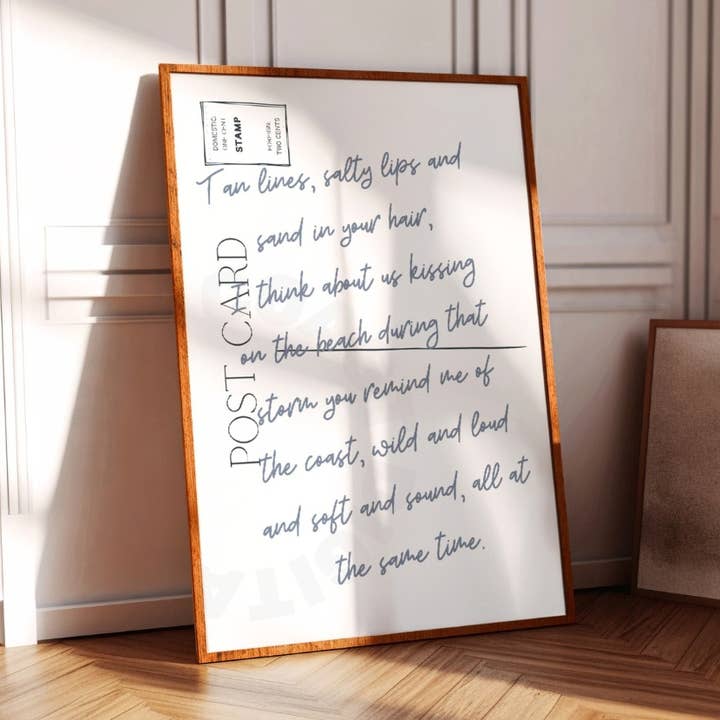 DOMESTIC
ONE CENT
STAMP
FOREIGN
TWO CENTS
POST CARD
Tan lines, salty lips and
sand in your hair,
I think about us kissing
on the beach during that
storm you remind me of
the coast, wild and loud
and soft and sound, all at
the same time.